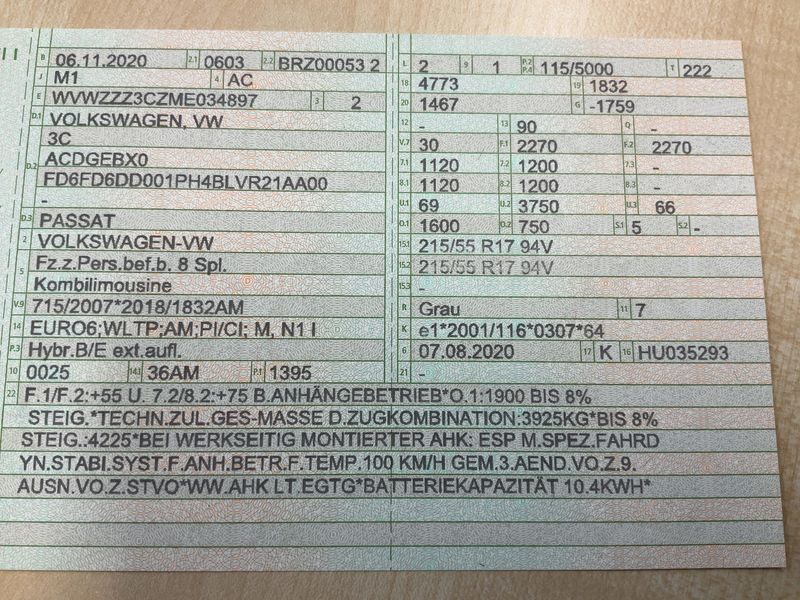 I I
B 06.11.2020 2.1 0603 2.2 BRZ00053 2
J M1 4 AC
E WVWZZZ3CZME034897 3 2
D.1 VOLKSWAGEN, VW
3C
D.2 ACDGEBX0
FD6FD6DD001PH4BLVR21AA00
-
D.3 PASSAT
2 VOLKSWAGEN-VW
5 Fz.z.Pers.bef.b. 8 Spl.
Kombilimousine
V.9 715/2007*2018/1832AM
14 EURO6;WLTP;AM;PI/CI; M, N1 I
P.3 Hybr.B/E ext.aufl.
10 0025 14.1 36AM P.1 1395
L 2 9 1 P.2 P.4 115/5000 T 222
18 4773 19 1832
20 1467 G -1759
12 - 13 90 Q -
V.7 30 F.1 2270 F.2 2270
7.1 1120 7.2 1200 7.3 -
8.1 1120 8.2 1200 8.3 -
U.1 69 U.2 3750 U.3 66
O.1 1600 O.2 750 S.1 5 S.2 -
15.1 215/55 R17 94V
15.2 215/55 R17 94V
15.3 -
R Grau 11 7
K e1*2001/116*0307*64
6 07.08.2020 17 K 16 HU035293
21 -
22 F.1/F.2:+55 U. 7.2/8.2:+75 B.ANHÄNGEBETRIEB*O.1:1900 BIS 8%
STEIG.*TECHN.ZUL.GES-MASSE D.ZUGKOMBINATION:3925KG*BIS 8%
STEIG.:4225*BEI WERKSEITIG MONTIERTER AHK: ESP M.SPEZ.FAHRD
YN.STABI.SYST.F.ANH.BETR.F.TEMP.100 KM/H GEM.3.AEND.VO.Z.9.
AUSN.VO.Z.STVO*WW.AHK LT.EGTG*BATTERIEKAPAZITÄT 10.4KWH*